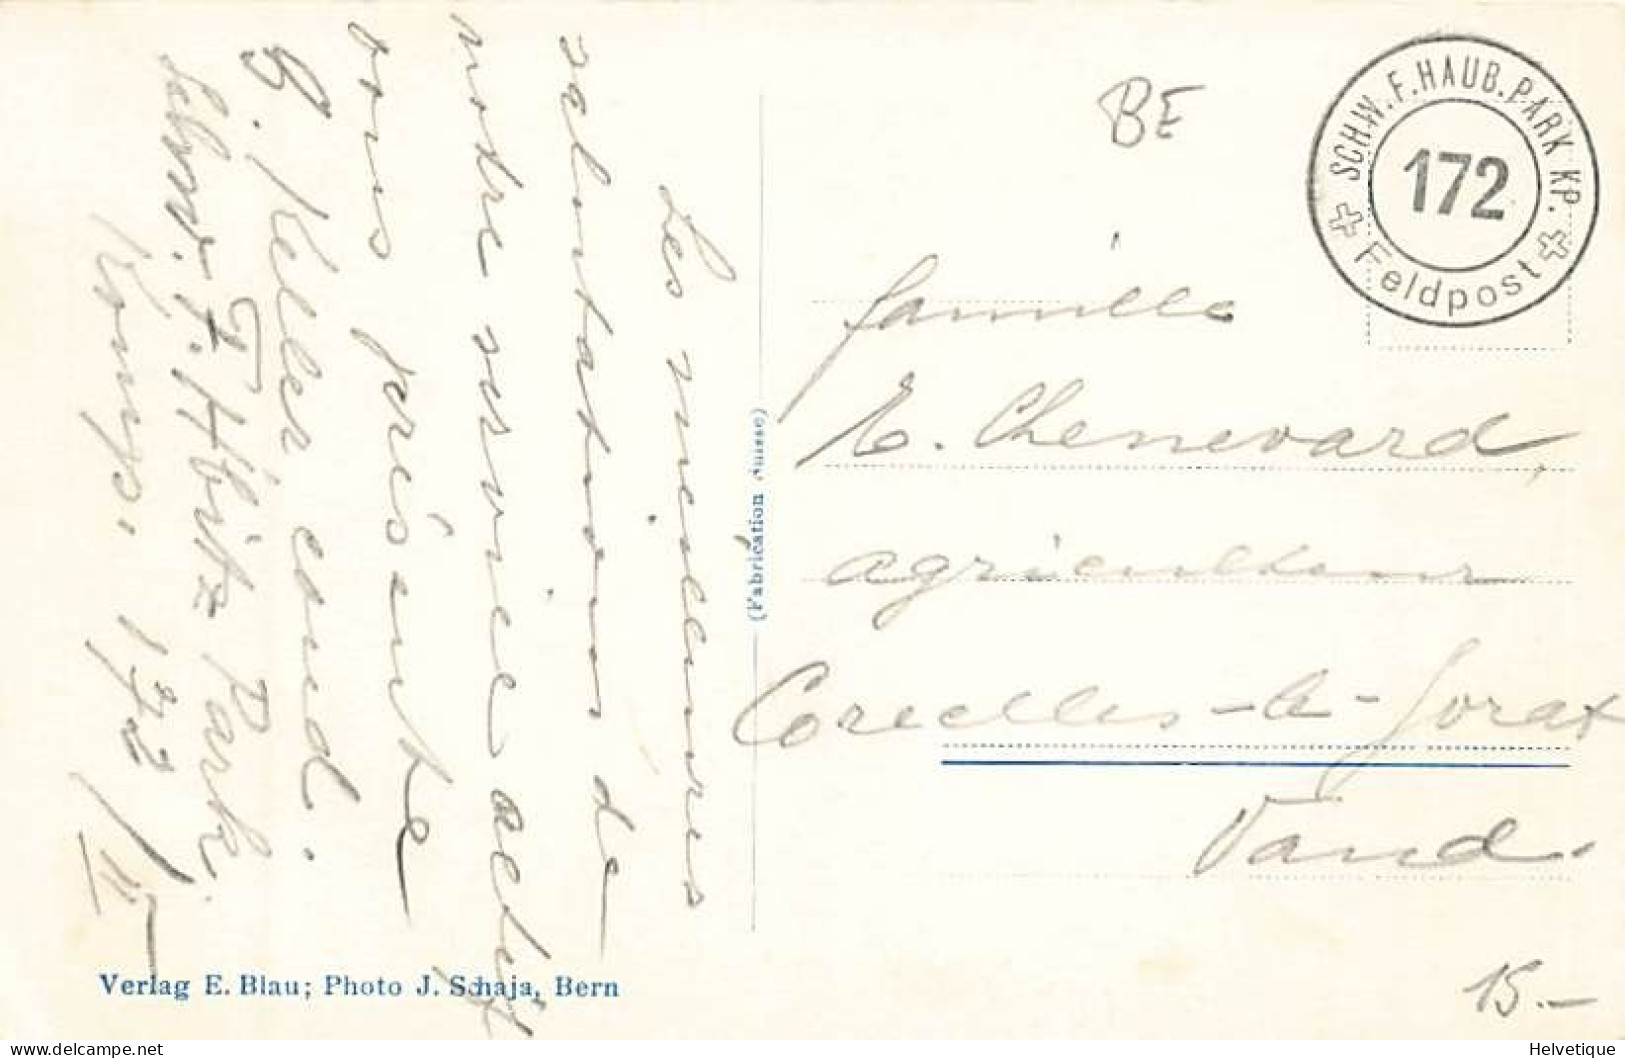 Les meilleures
salutations de
notre service actif
vous présente
G. Keller cond.
Schw. F. Hbitz Park.
Komp. 172 / III
BE
SCHW. F. HAUB. PARK KP.
172
Feldpost
famille
E. Chenevard,
agriculteur
Corcelles-le-Jorat
Vaud.
(Fabrication Suisse)
Verlag E. Blau; Photo J. Schaja, Bern
15.–
delcampe.net
Helvetique